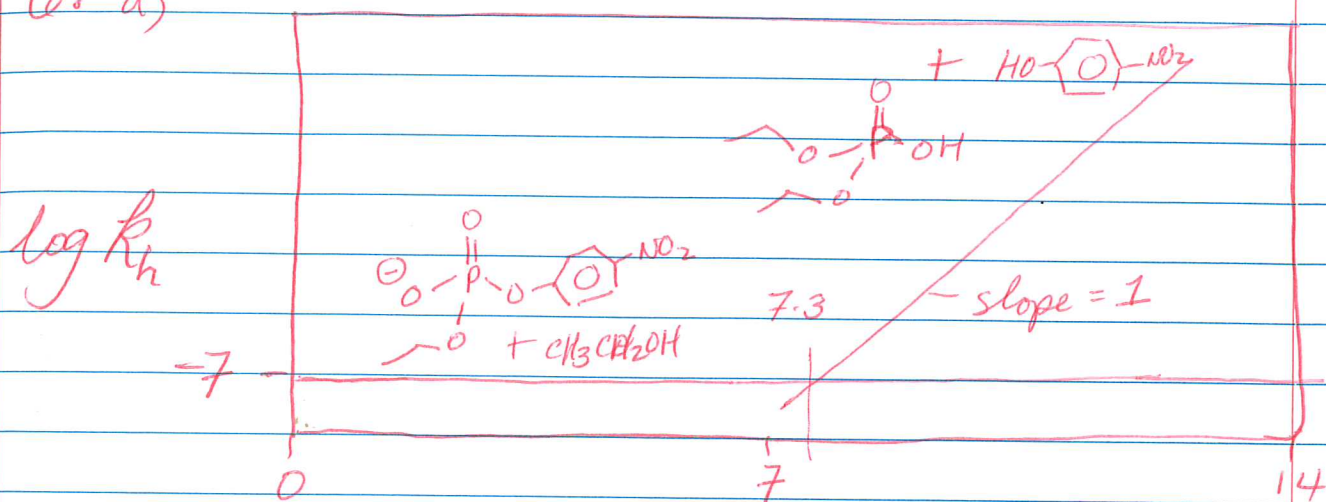 (63 a)
+ HO NO2
O
O P OH
O
log kh
O
⊖ O P O NO2
O + CH3CH2OH
7.3
slope = 1
-7
0 7 14